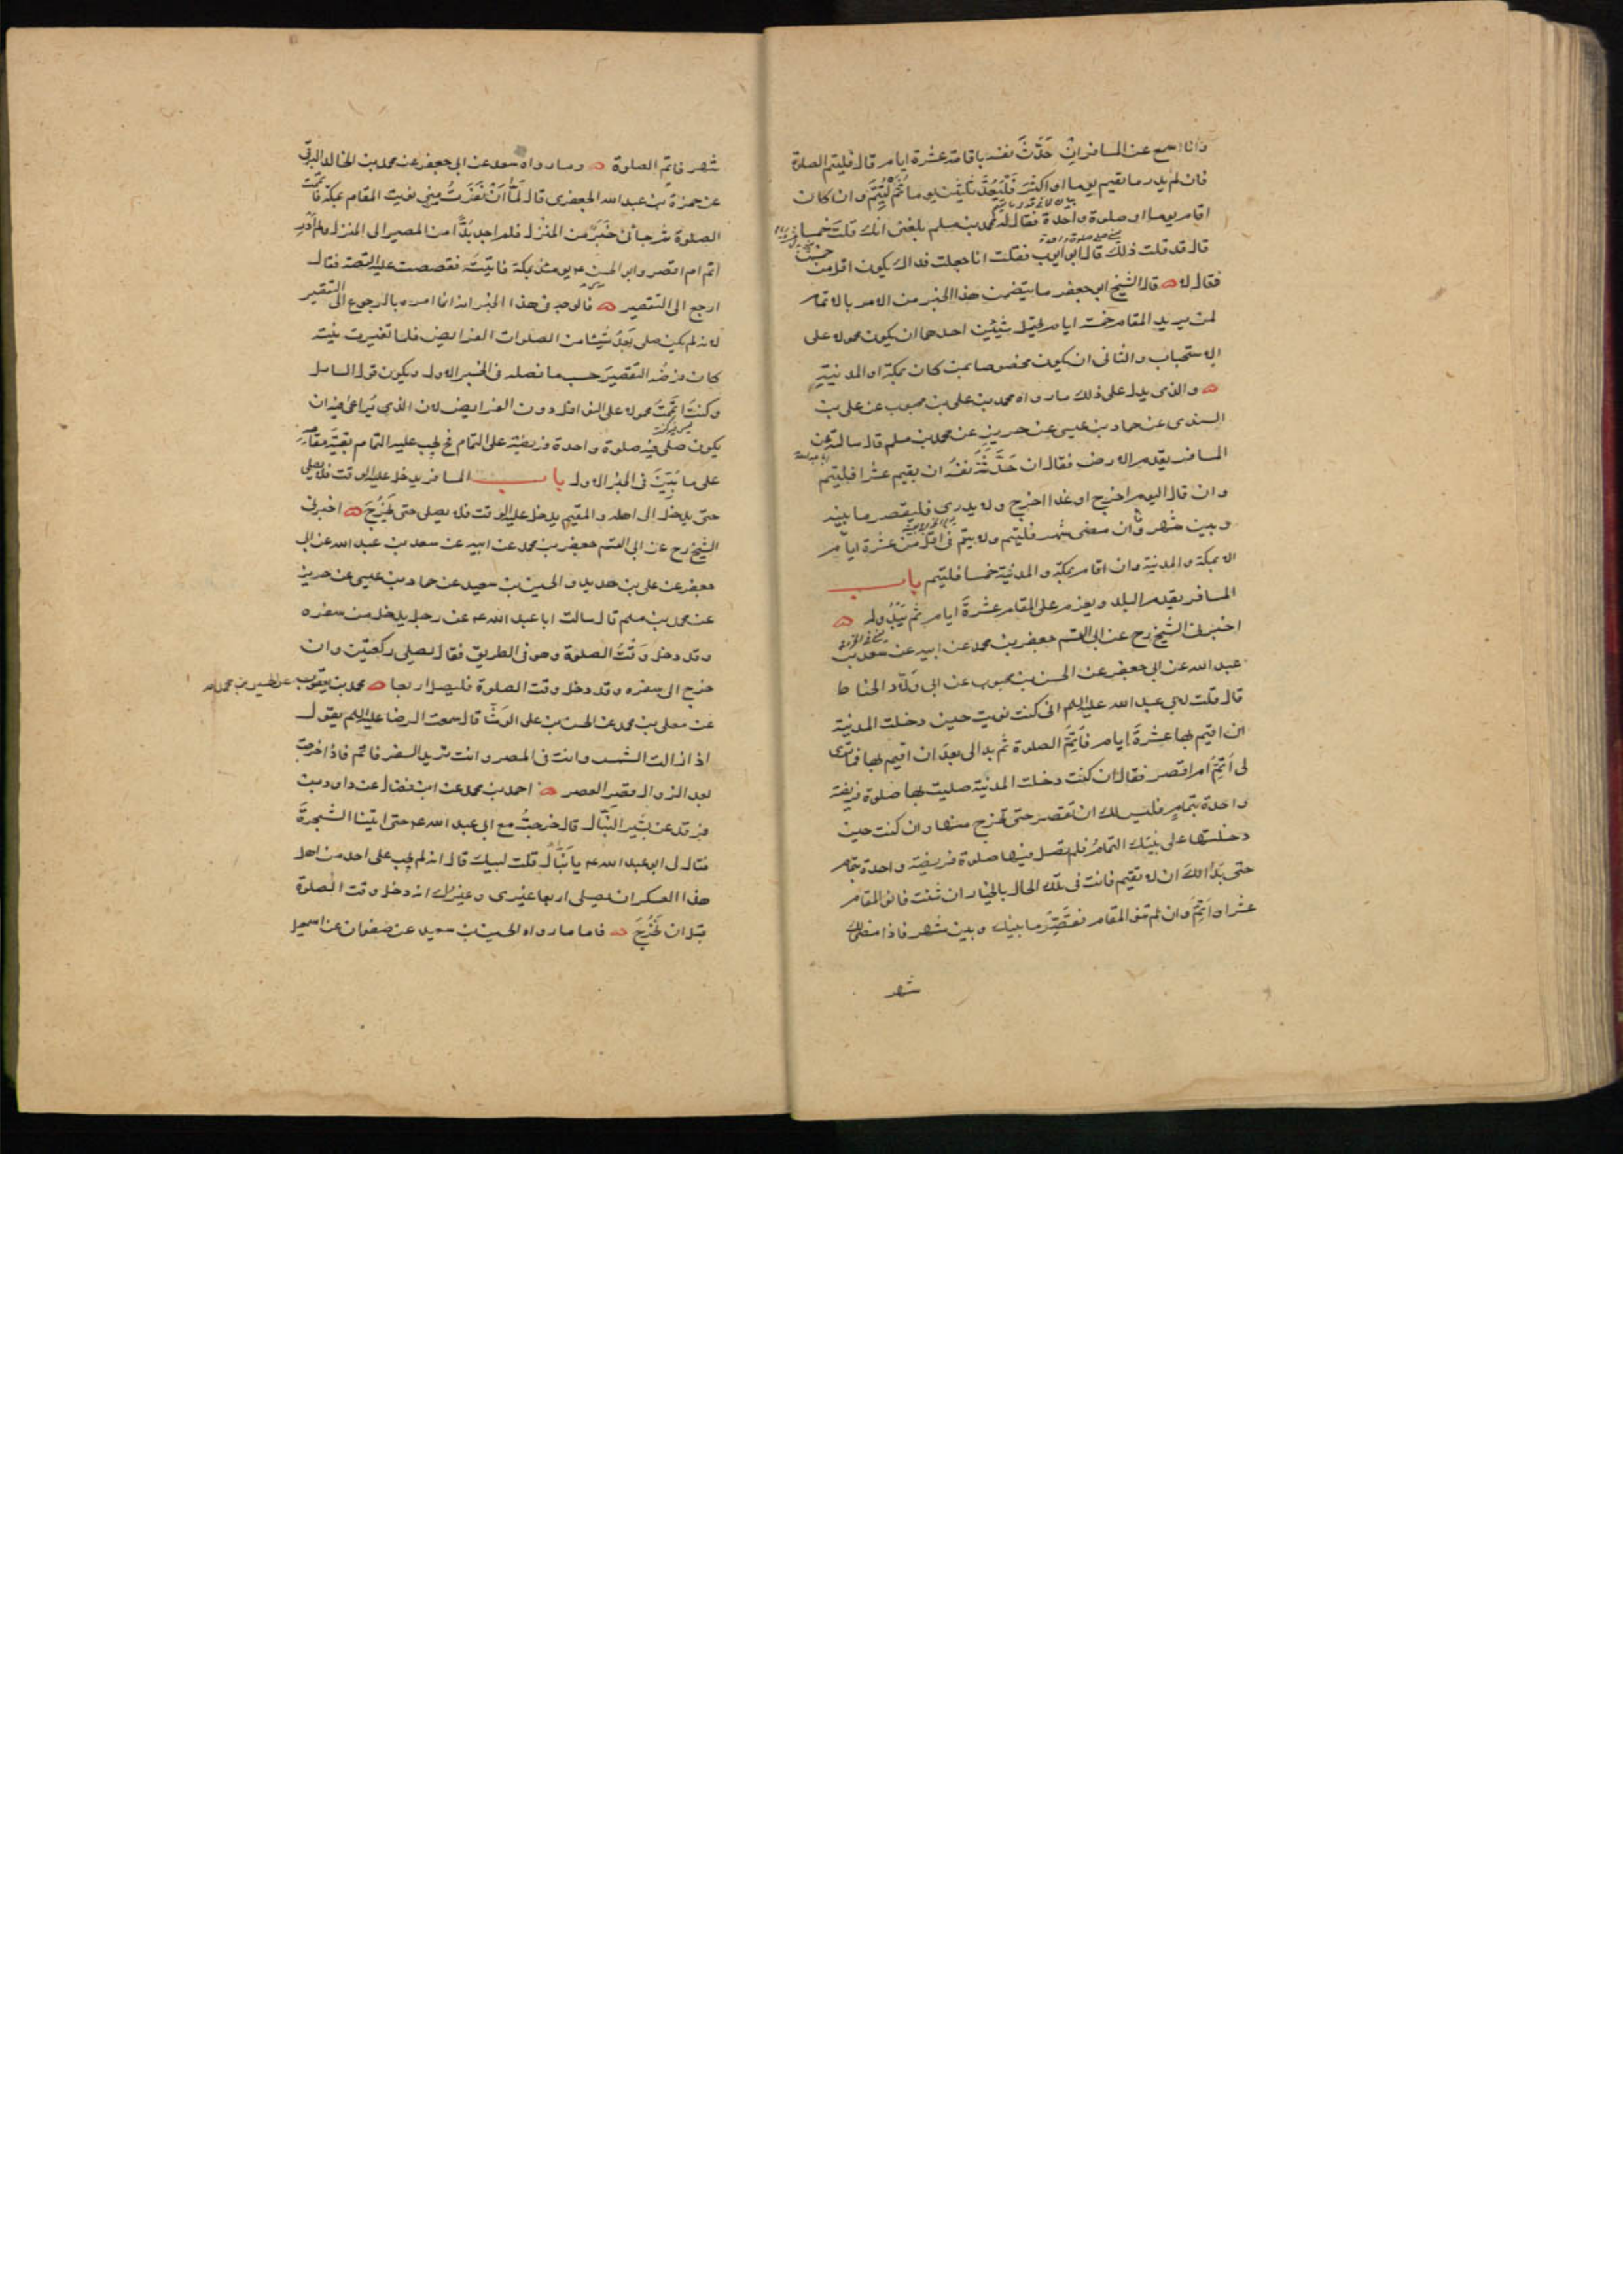 وانا اسمع عن المسافر ان حَدَّثَ نفسه باقامة عشرة ايام قال فليتم الصلوة
فان لم يدر ما يقيم يوما او اكثر فَلْيَعُدَّ ثلثين يوما ثُمَّ لْيُتِمَّ وان كان
اقام يوما او صلوة واحدة فقال له محمد بن مسلم بلغنى انك قلت خمسا
قال قد قلت ذلك قال ابو ايوب فقلت انا جعلت فداك يكون اقل من خمسة
فقال لا قال الشيخ ابو جعفر ما يتضمن هذا الخبر من الامر بالاتمام
لمن يريد المقام خمسة ايام يحتمل شيئين احدهما ان يكون محمولا على
الاستحباب والثانى ان يكون مخصوصا بمن كان بمكة او المدينة
والذى يدل على ذلك ما رواه محمد بن على بن محبوب عن على بن
السندى عن حماد بن عيسى عن حريز عن محمد بن مسلم قال سالته عن
المسافر يقدم الارض فقال ان حَدَّثَتْهُ نفسُه ان يقيم عشرا فليتم
وان قال اليوم اخرج او غدا اخرج ولا يدرى فليقصر ما بينه
وبين شهر وان مضى شهر فليتم ولا يتم فى اقل من عشرة ايام
الا بمكة والمدينة وان اقام بمكة والمدينة خمسا فليتم باب
المسافر يقدم البلد ويعزم على المقام عشرة ايام ثم يَبْدُو له
اخبرنى الشيخ رح عن ابى القسم جعفر بن محمد عن ابيه عن سعد بن
عبد الله عن ابى جعفر عن الحسن بن محبوب عن ابى ولّاد الحناط
قال قلت لابى عبد الله عليه السلم انى كنت نويت حين دخلت المدينة
ان اقيم بها عشرة ايام فاَتِمَّ الصلوة ثم بدا لى بعدَ ان اقيم بها فما ترى
لى اُتِمُّ ام اقصر فقال ان كنت دخلت المدينة صليت بها صلوة فريضة
واحدة بتمامٍ فليس لك ان تقصر حتى تخرج منها وان كنت حين
دخلتها على نيتك التمامُ فلم تصل فيها صلوة فريضة واحدة بتمام
حتى بدا لك ان لا تقيم فانت فى تلك الحال بالخيار ان شئت فانو المقام
عشرا واَتِمَّ وان لم تنو المقام فقصِّر ما بينك وبين شهر فاذا مضى لك
شهر
شهر فاتم الصلوة وما رواه سعد عن ابى جعفر عن محمد بن الخالد البرقى
عن حمزة بن عبد الله الجعفرى قال لَمّا اَنْ نَفَرْتُ من منى نويت المقام بمكة فاتممت
الصلوة ثم جائنى خَبَرٌ من المنزل فلم اجد بُدًّا من المصير الى المنزل ولم اَدْرِ
اتم ام اقصر وابو الحسن ع يومئذ بمكة فاتيته فقصصت عليه القصة فقال
ارجع الى التقصير فالوجه فى هذا الخبر انه انما امره بالرجوع الى التقصير
لانه لم يكن صلى بَعدُ شيئا من الصلوات الفرايض فلما تغيرت نيته
كان فرضُه التقصيرَ حسب ما فصله فى الخبر الاول ويكون قول السائل
وكنتُ اَتمَمتُ محمولا على النوافل دون الفرايض لان الذي يُراعى فيه ان
يكون صلى فيه صلوة واحدة فريضة على التمام فح يجب عليه التمام بقيّة مقامه
على ما تَبَيَّنَ فى الخبر الاول باب المسافر يدخل عليه الوقت فلا يصلى
حتى يدخل الى اهله والمقيم يدخل عليه الوقت فلا يصلى حتى يَخْرُجَ اخبرنى
الشيخ رح عن ابى القسم جعفر بن محمد عن ابيه عن سعد بن عبد الله عن ابى
جعفر عن على بن حديد والحسين بن سعيد عن حماد بن عيسى عن حريز
عن محمد بن مسلم قال سالت ابا عبد الله ع عن رجل يدخل من سفره
وقد دخل وَقْتُ الصلوة وهو فى الطريق فقال يصلى ركعتين وان
خرج الى سفره وقد دخل وقت الصلوة فليصل اربعا محمد بن يعقوب عن الحسين بن محمد
عن معلى بن محمد عن الحسن بن على الوشّا قال سمعت الرضا عليه السلم يقول
اذا زالت الشمس وانت فى المصر وانت تريد السفر فاتم فاذا خرجت
بعد الزوال قصر العصر احمد بن محمد عن ابن فضال عن داود بن
فرقد عن بشير النَبّال قال خرجتُ مع ابى عبد الله ع حتى اتينا الشجرةَ
فقال لى ابو عبد الله ع يا نَبّالُ قلت لبيك قال انه لم يجب على احد من اهل
هذا العسكر ان يصلى اربعا غيرى وغيرك انه دخل وقت الصلوة
قبل ان نَخْرُجَ فاما ما رواه الحسين بن سعيد عن صفوان عن اسمعيل